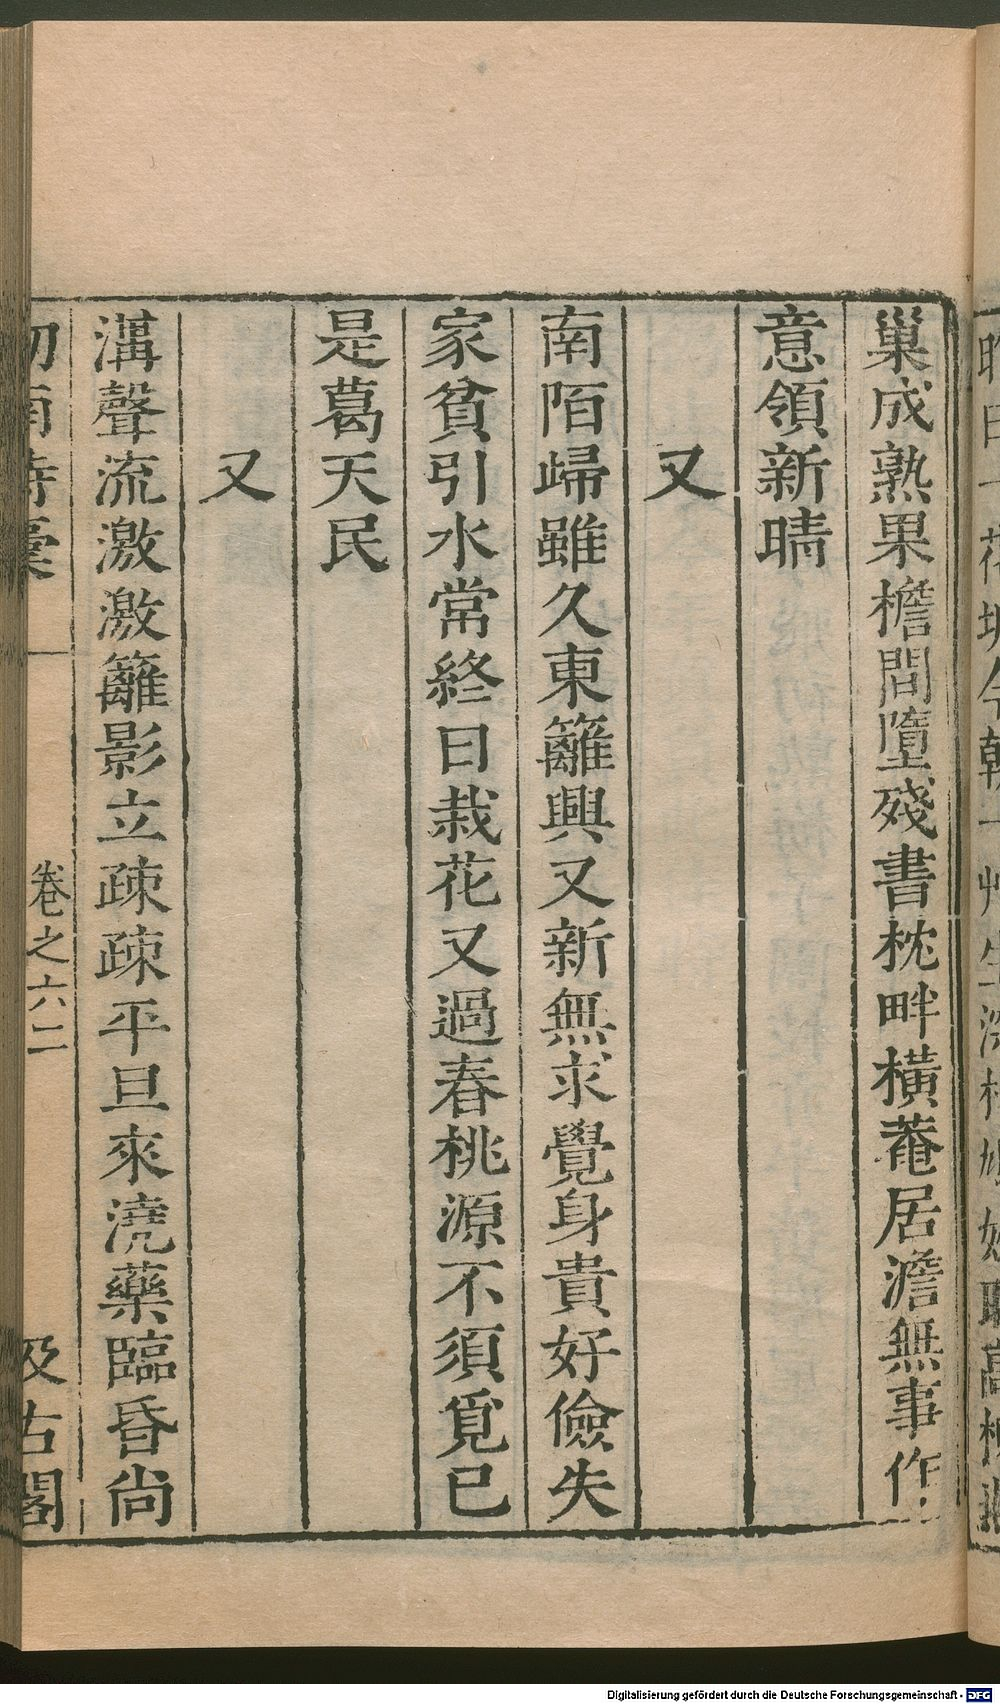 巢成熟果檐間墮殘書枕畔橫菴居澹無事作
意領新晴
又
南陌歸雖久東籬興又新無求覺身貴好儉失
家貧引水常終日栽花又過春桃源不須覓已
是葛天民
又
溝聲流激激籬影立疎疎平旦來澆藥臨昏尚
卷之六二
及古閣
Digitalisierung gefördert durch die Deutsche Forschungsgemeinschaft - DFG